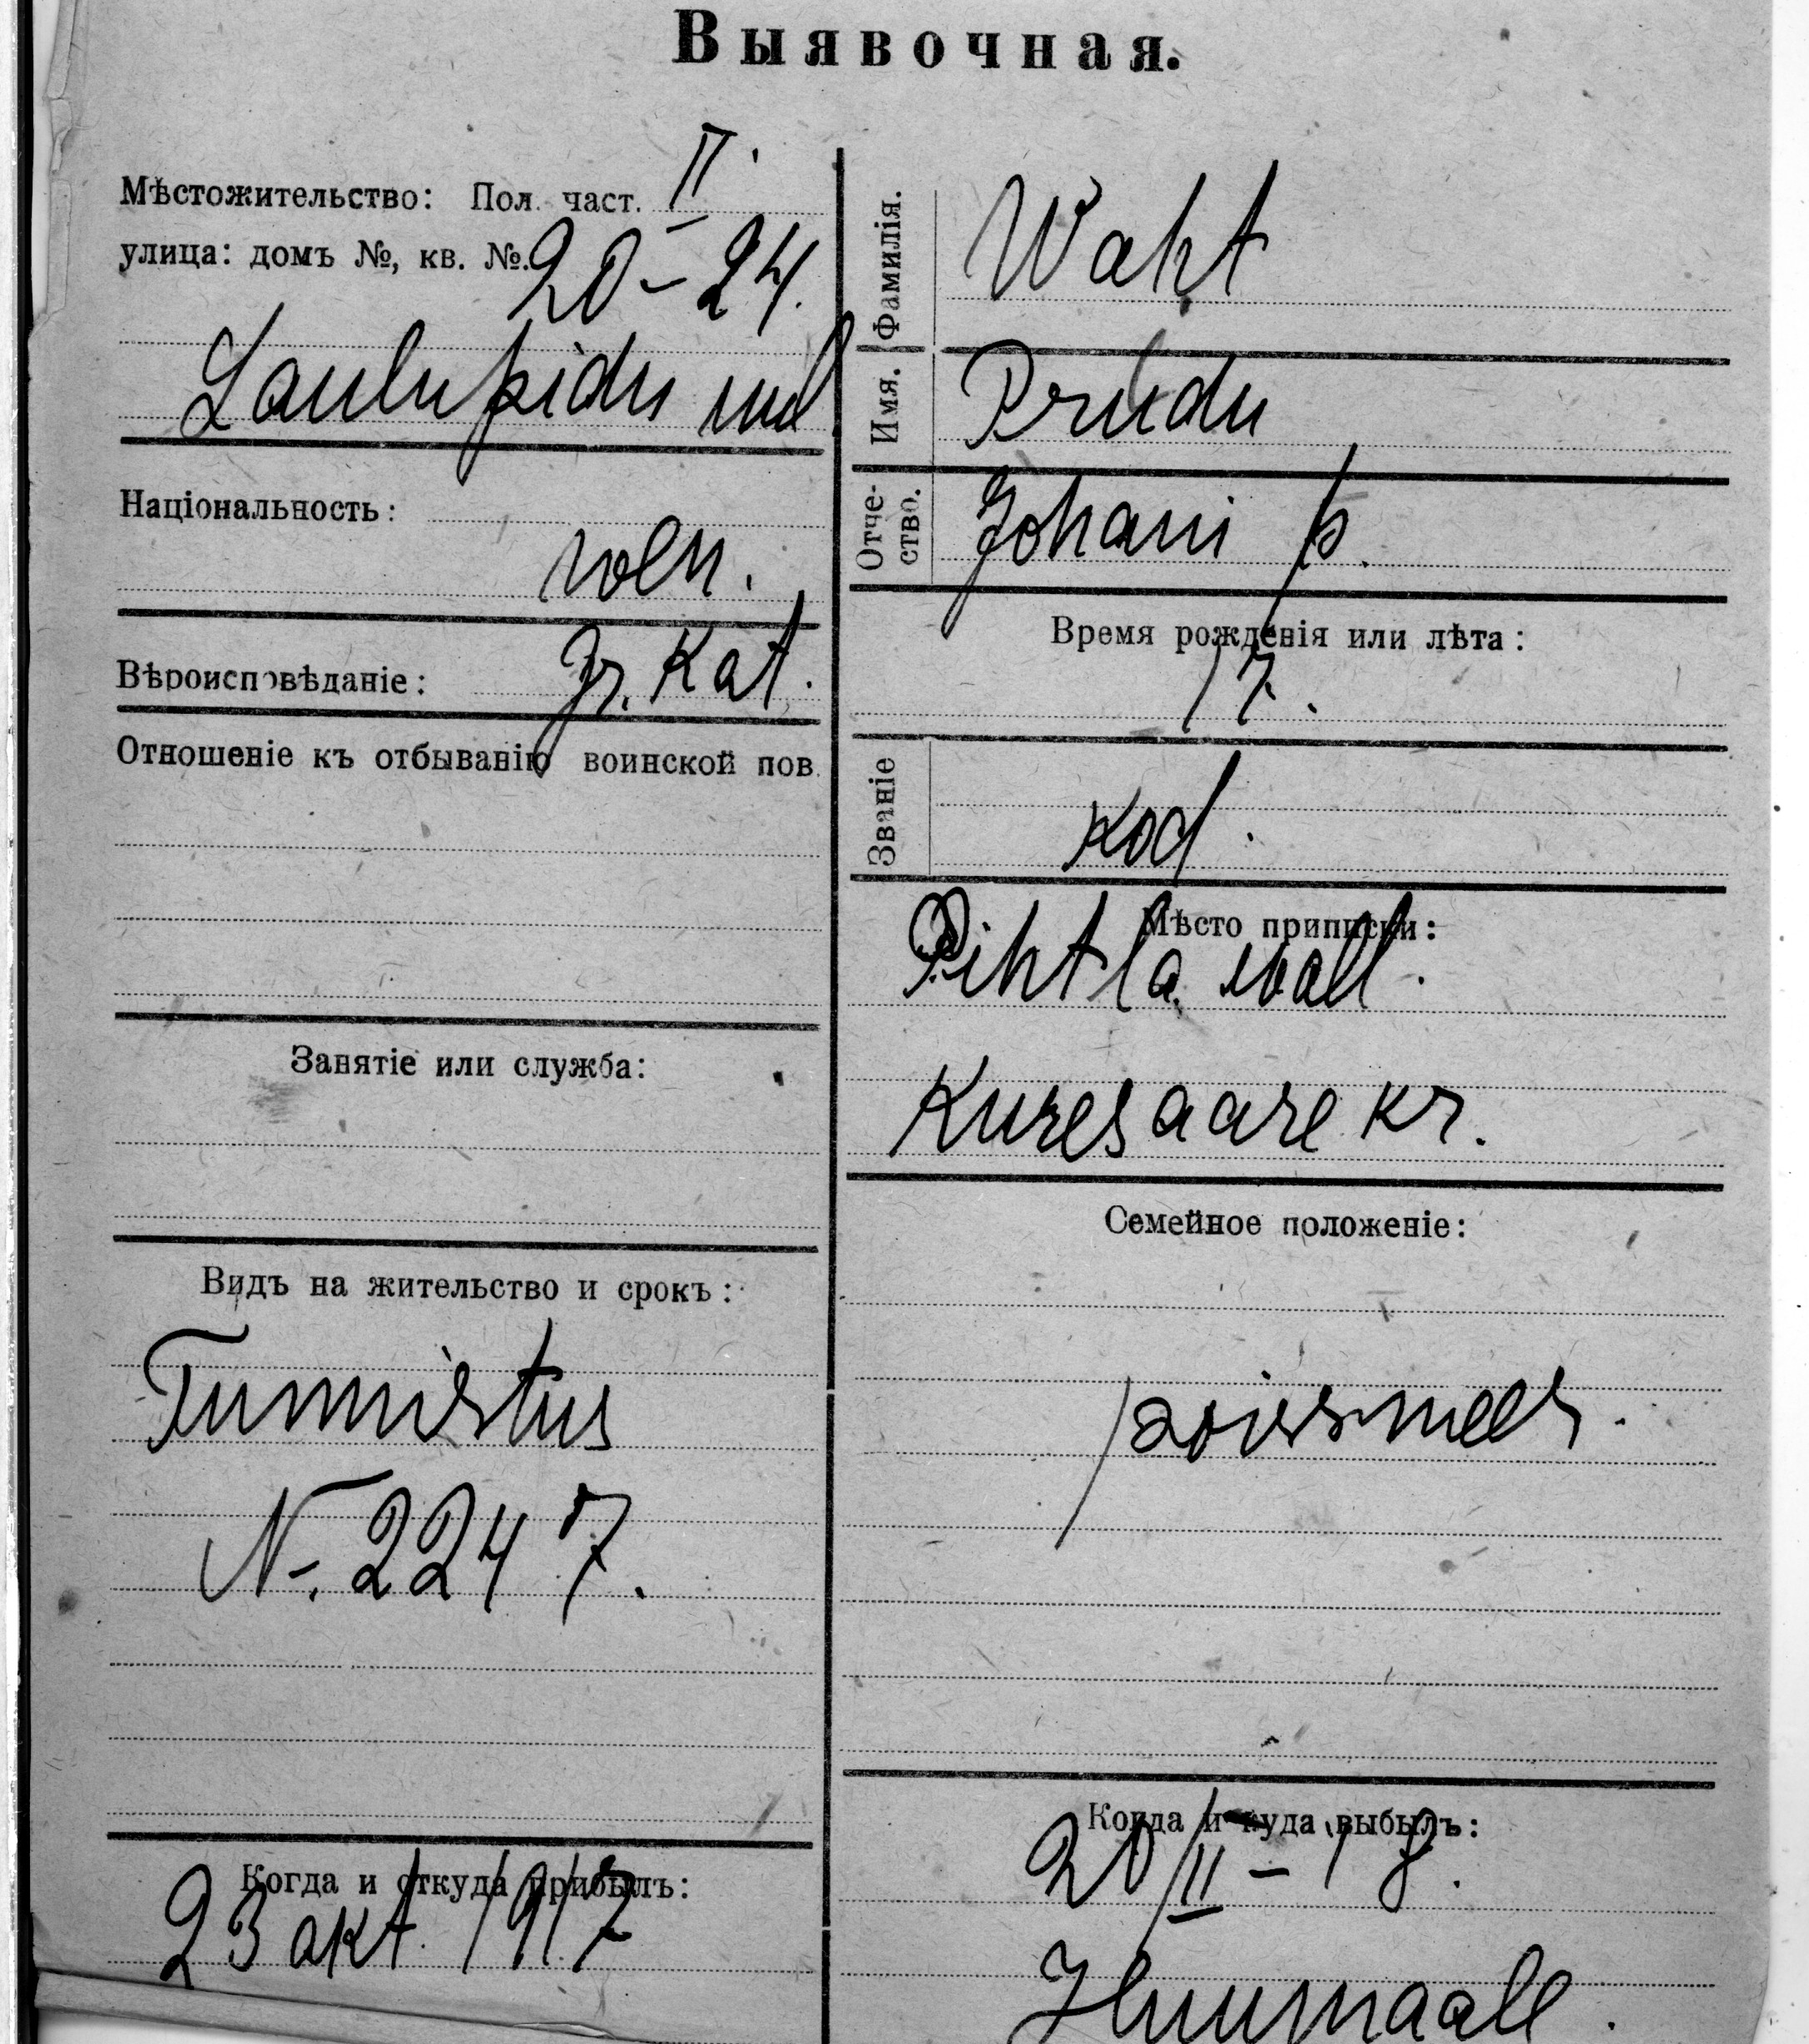 Выявочная.
Мѣстожительство: Пол. част. II.
улица: домъ №, кв. №. 20-24.
Laulupidu uul
Національность:
wen.
Вѣроисповѣданіе: gr. Kat.
Отношеніе къ отбыванію воинской пов.
Занятіе или служба:
Видъ на жительство и срокъ:
Tunnistus
N. 2247.
Когда и откуда прибылъ:
23 okt. 1917
Фамилія. Waht
Имя. Priidu
Отче-ство. Johani p.
Время рожденія или лѣта:
17.
Званіе
kod.
Мѣсто приписки:
Pihtla wall.
Kuresaare kr.
Семейное положеніе:
poismees.
Когда и куда выбылъ:
20/II-18.
Hiiumaale.